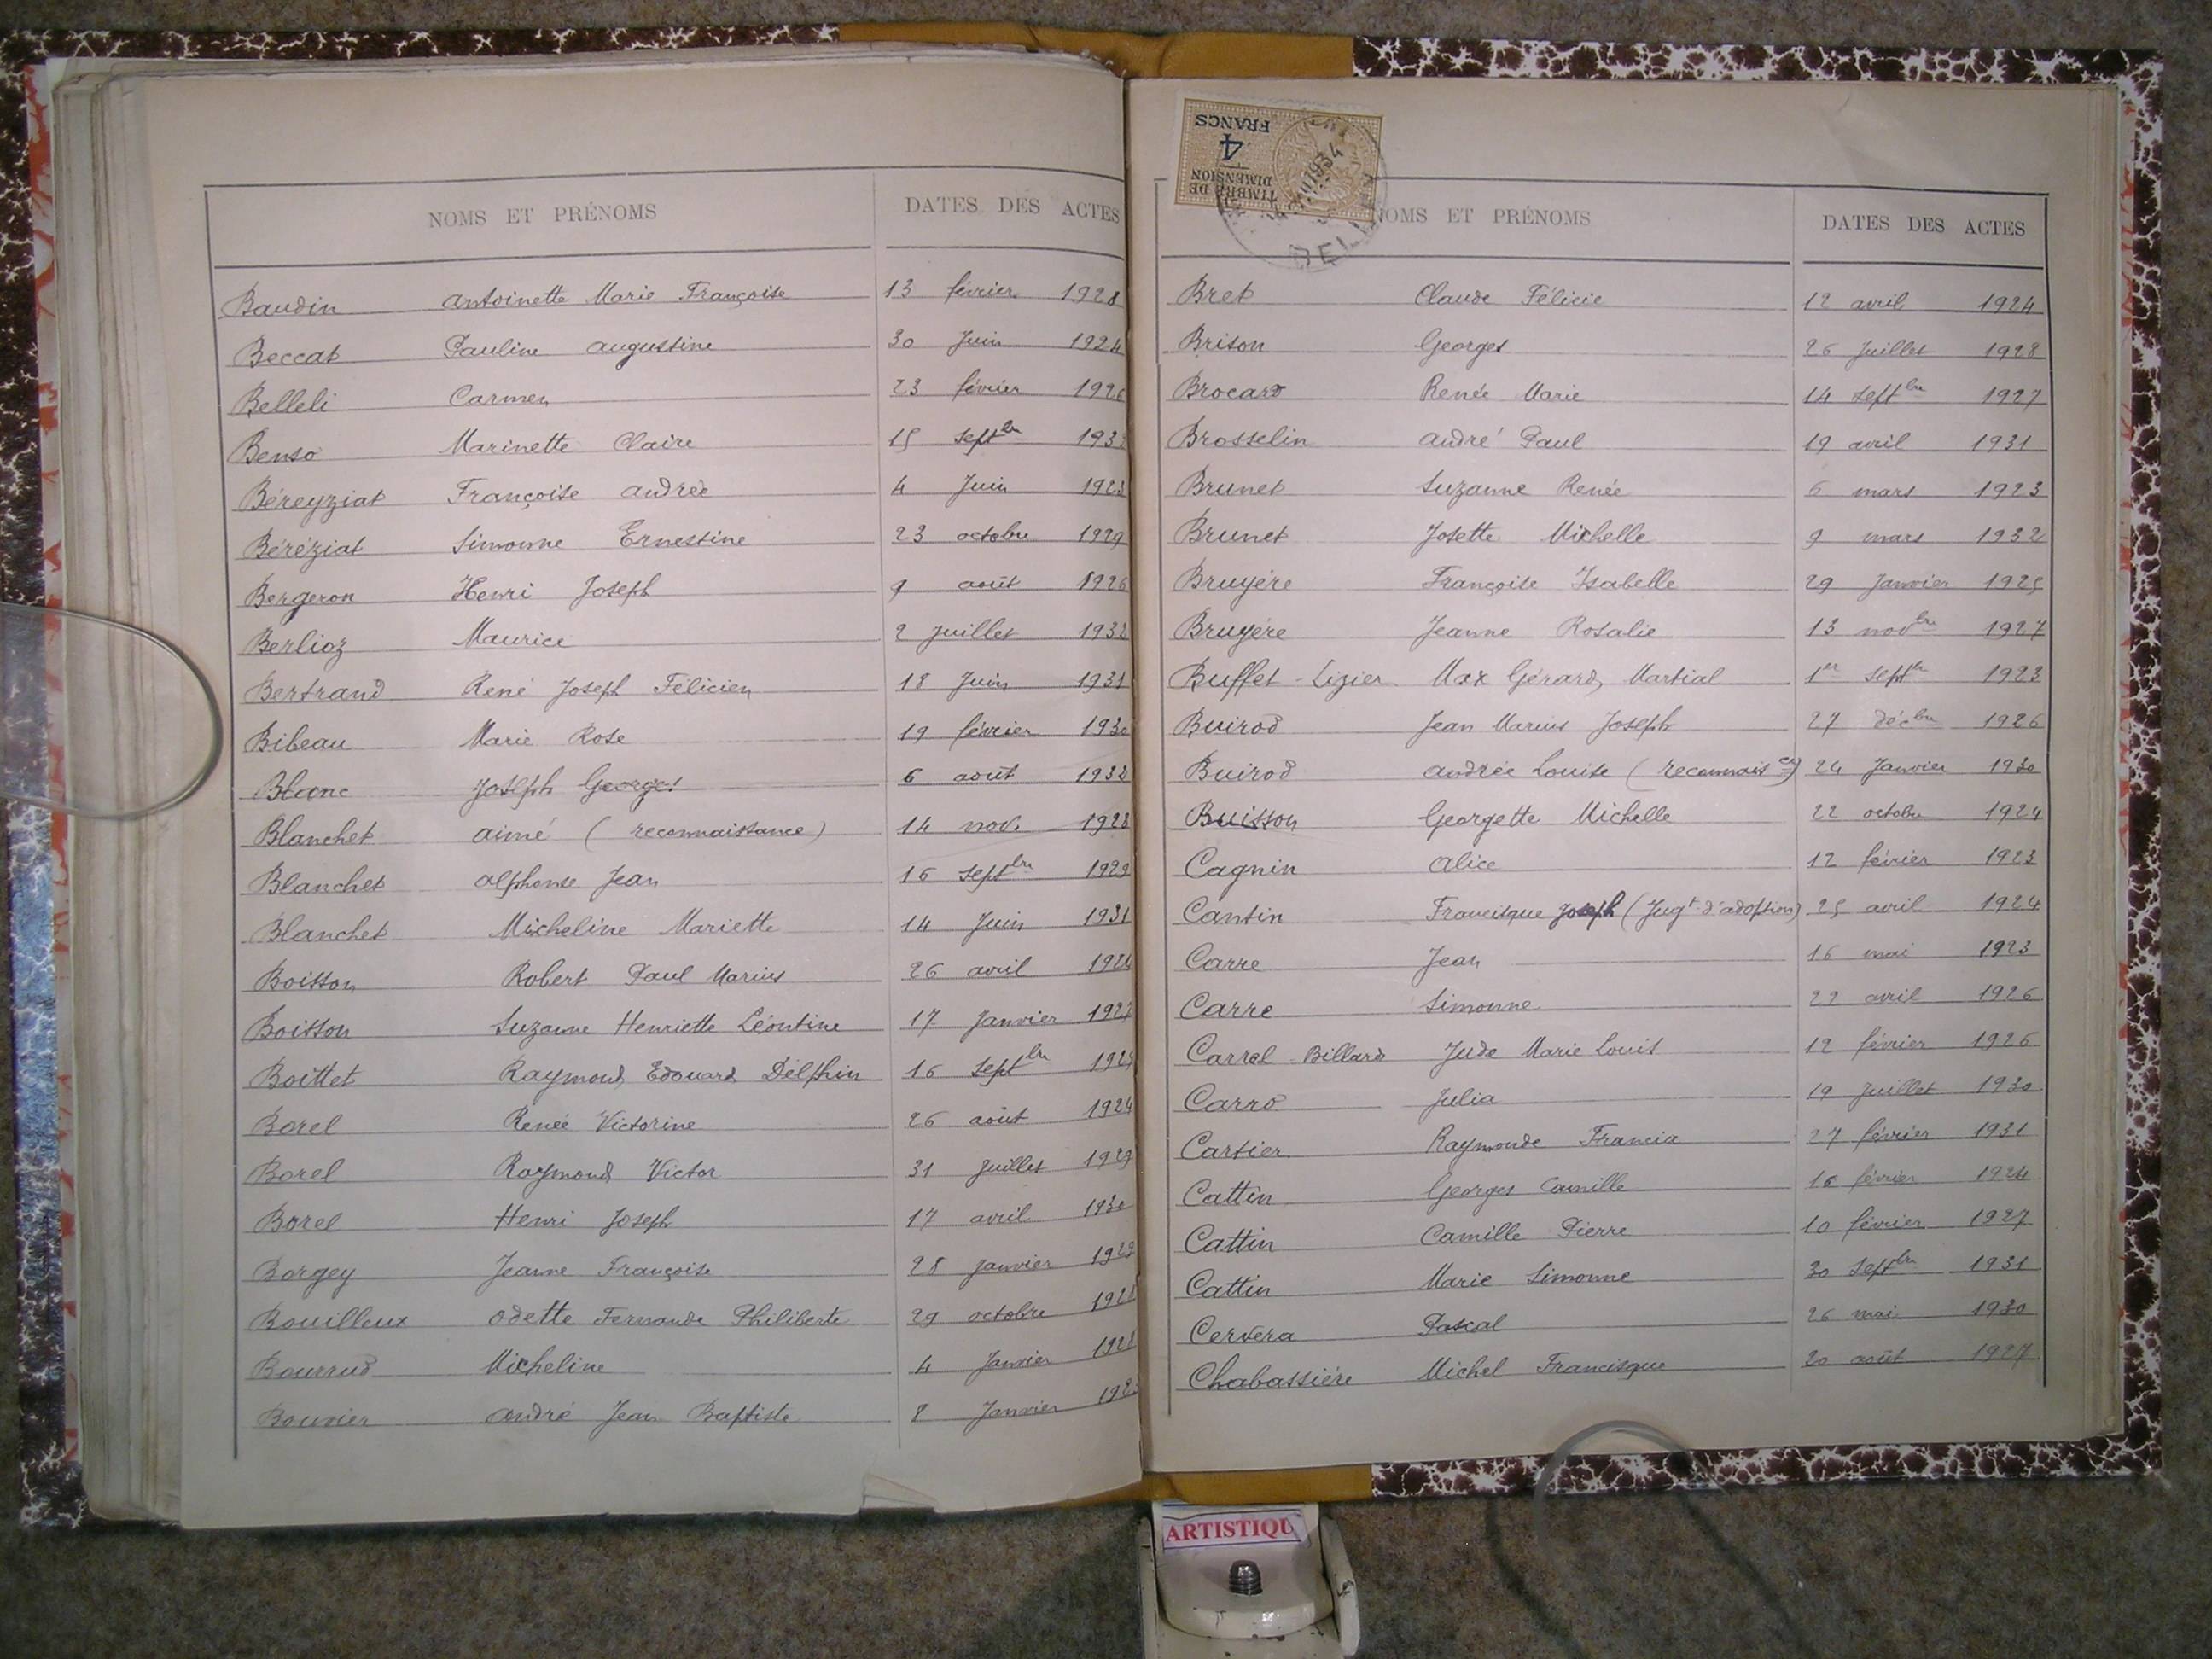 NOMS ET PRÉNOMS DATES DES ACTES
Baudin Antoinette Marie Françoise 13 février 1928
Beccat Pauline Augustine 30 Juin 1924
Belleli Carmen 23 février 1926
Benso Marinette Claire 15 septbre
Béreyziat Françoise Andrée 4 Juin 1923
Béréziat Simonne Ernestine 23 octobre 1929
Bergeron Henri Joseph 9 août 1926
Berlioz Maurice 2 juillet 1932
Bertrand René Joseph Félicien 18 Juin 1931
Bibeau Marie Rose 19 février 1930
Blanc Joseph Georges 6 août 1932
Blanchet Aimé (reconnaissance) 14 nov. 1928
Blanchet Alphonse Jean 16 septbre 1929
Blanchet Micheline Mariette 14 Juin 1931
Boisson Robert Paul Marius 26 avril 1924
Boisson Suzanne Henriette Léontine 17 Janvier 1927
Boittet Raymond Edouard Delphin 16 septbre
Borel Renée Victorine 26 août 1924
Borel Raymond Victor 31 Juillet 1929
Borel Henri Joseph 17 avril 1930
Borgey Jeanne Françoise 28 Janvier 1929
Bouilleux Odette Fernande Philiberte 29 octobre 1928
Bourrud Micheline 4 Janvier 1928
Bouvier André Jean Baptiste 8 Janvier
TIMBRE DE DIMENSION
4
FRANCS
1934
BEL
NOMS ET PRÉNOMS DATES DES ACTES
Bret Claude Félicie 12 avril 1924
Brison Georges 26 Juillet 1928
Brocard Renée Marie 14 septbre 1927
Brosselin André Paul 19 avril 1931
Brunet Suzanne Renée 6 mars 1923
Brunet Josette Michelle 9 mars 1932
Bruyère Françoise Isabelle 29 Janvier 1925
Bruyère Jeanne Rosalie 13 novbre 1927
Buffet-Ligier Max Gérard Martial 1er septbre 1923
Buirod Jean Marius Joseph 27 décbre 1926
Buirod Andrée Louise (reconnaisce) 24 Janvier 1930
Buisson Georgette Michelle 22 octobre 1924
Cagnin Alice 12 février 1923
Cantin Francisque Joseph (Jugt d'adoption) 25 avril 1924
Carre Jean 16 mai 1923
Carre Simonne 22 avril 1926
Carrel-Billard Jude Marie Louis 12 février 1926
Carro Julia 19 Juillet 1930
Cartier Raymonde Francia 27 février 1931
Cattin Georges Camille 16 février 1924
Cattin Camille Pierre 10 février 1927
Cattin Marie Simonne 30 septbre 1931
Cervera Pascal 26 mai 1930
Chabassière Michel Francisque 20 août 1927
ARTISTIQU